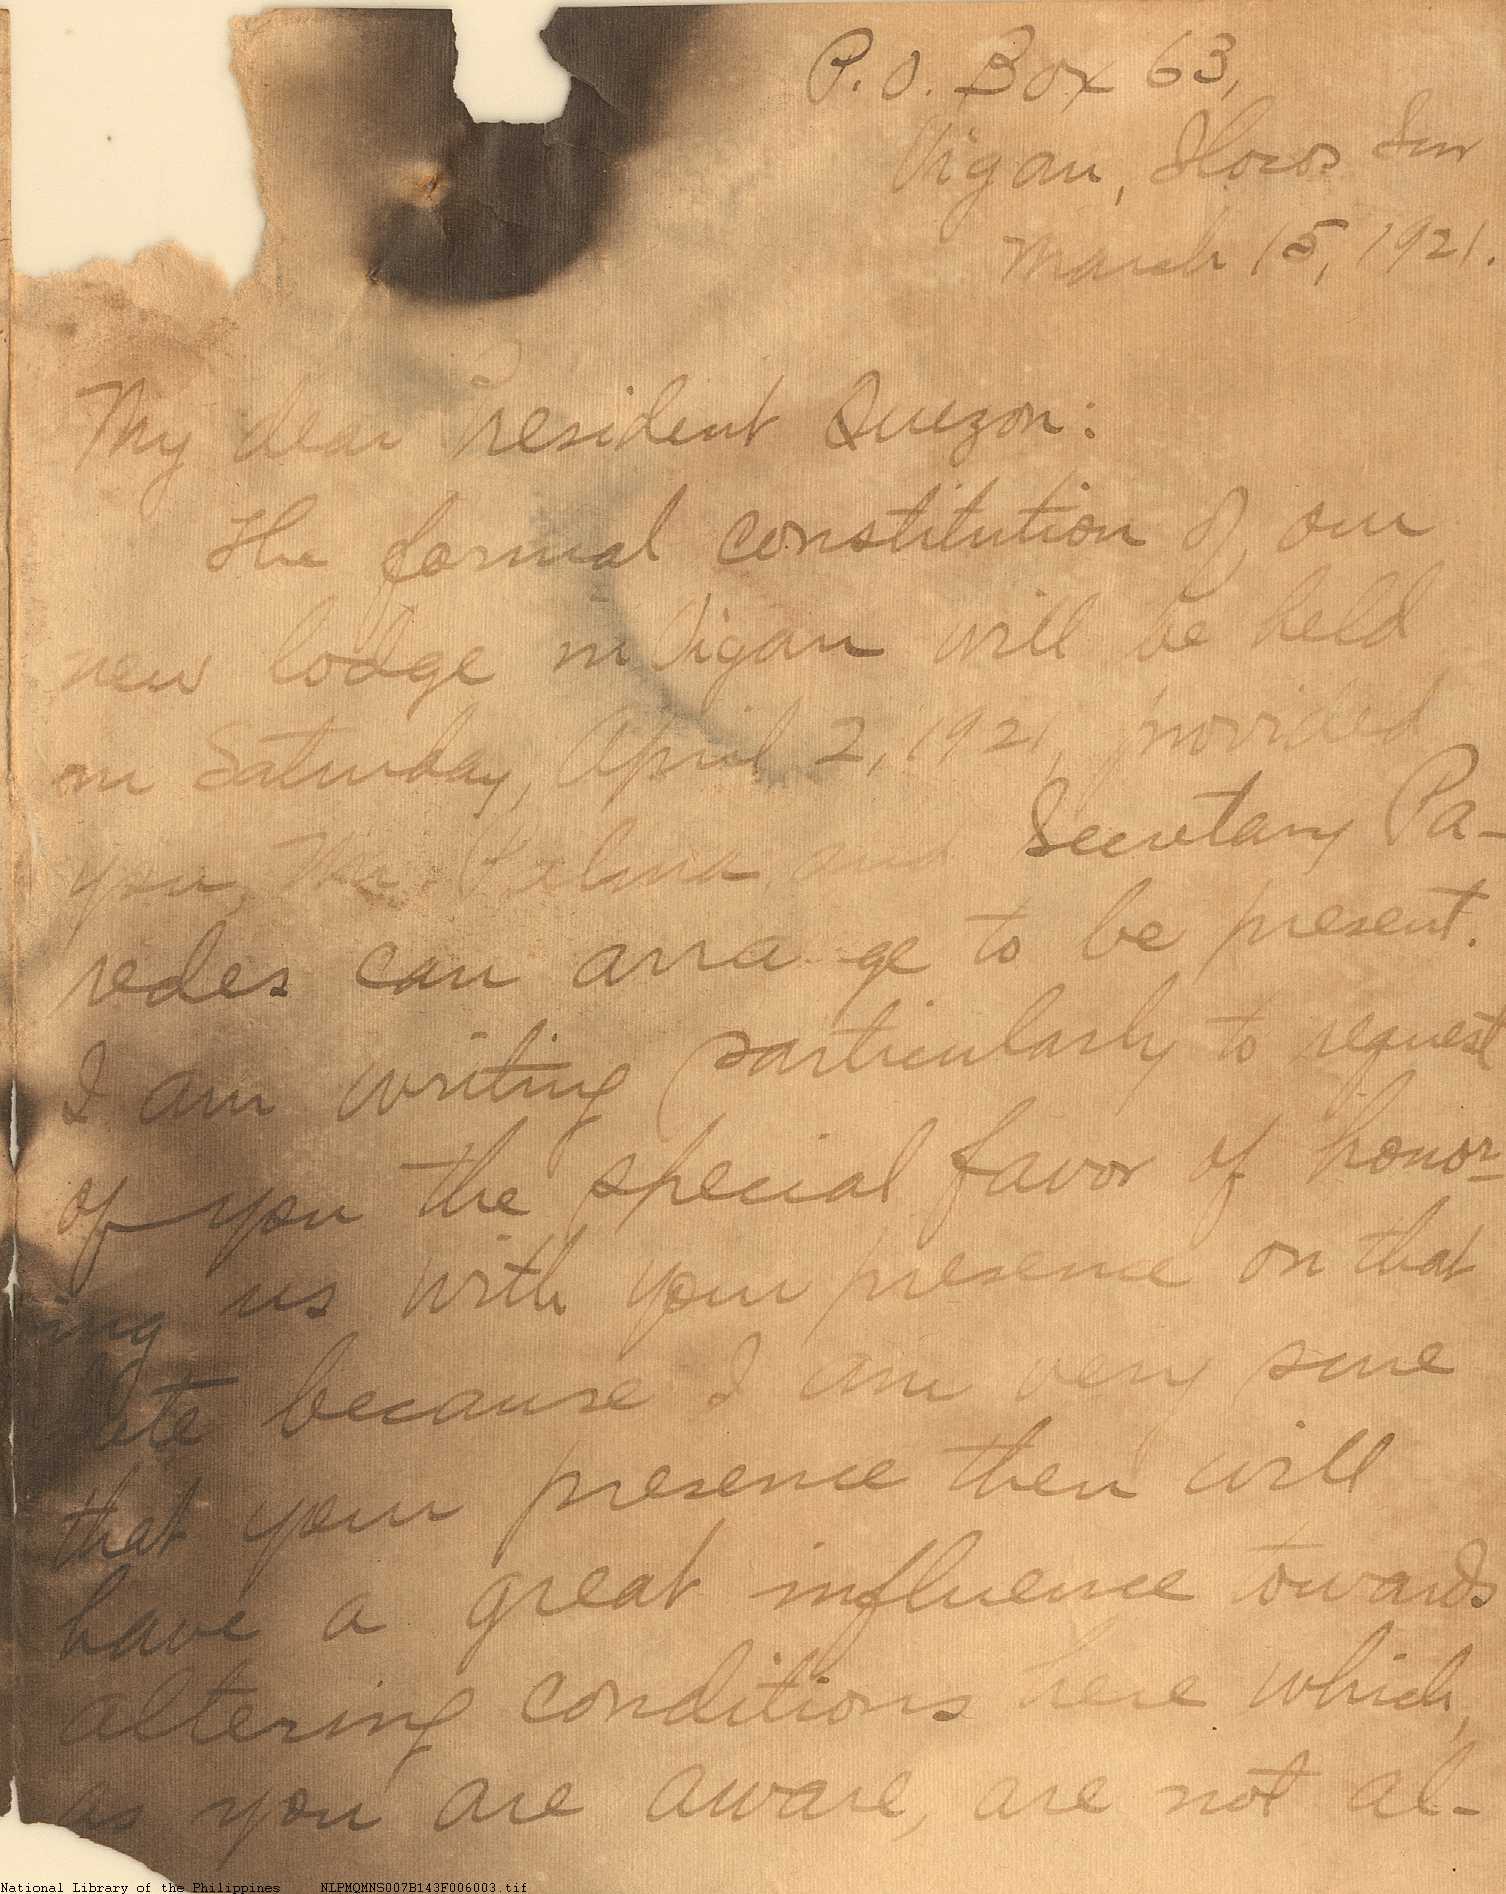 P. O. Box 63,
Vigan, Ilocos Sur
March 15, 1921.
My dear President Quezon:
The formal constitution of our
new lodge in Vigan will be held
on Saturday, April 2, 1921, provided
you, Mr. Palma, and Secretary Pa-
redes can arra ge to be present.
I am writing particularly to request
of you the special favor of honor-
ing us with your presence on that
date because I am very sure
that your presence then will
have a great influence towards
altering conditions here which,
as you are aware, are not al-
National Library of the Philippines NLPMQMNS007B143F006003.tif